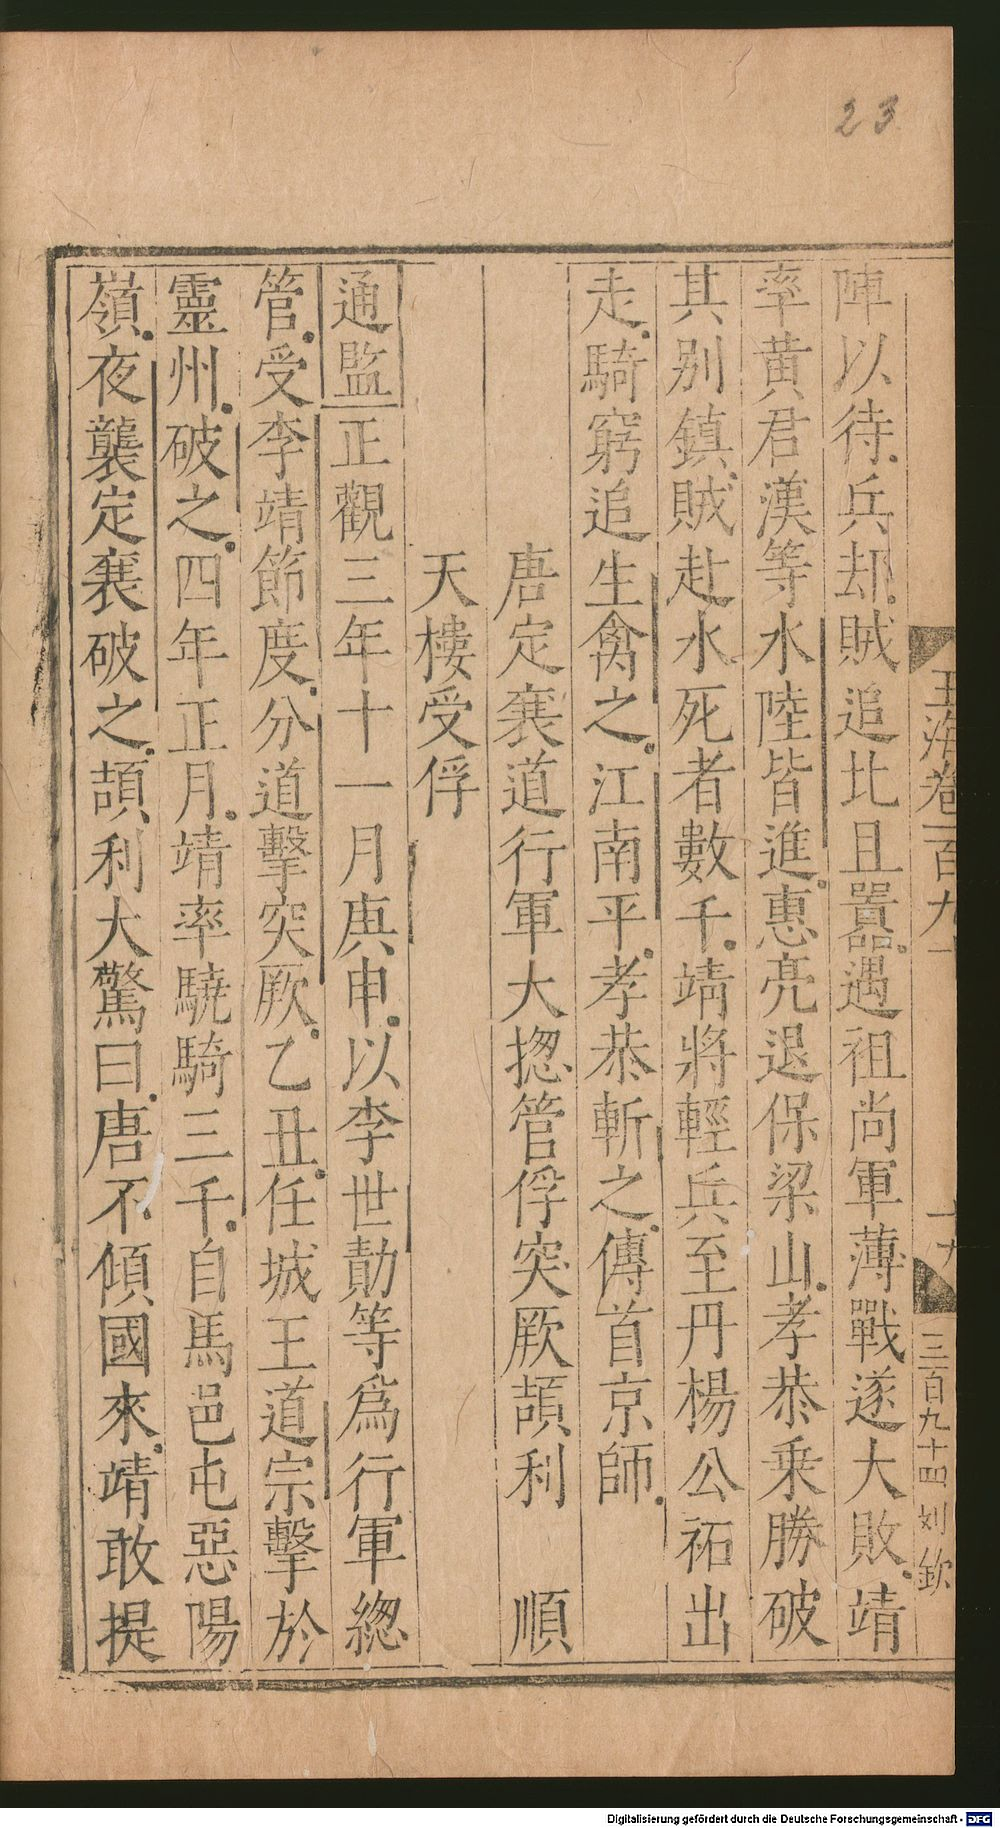 23
玉海卷一百九十
十九
三百九十四
刘欽
陣以待兵却賊追比且囂遇祖尚軍薄戰遂大敗靖
率黄君漢等水陸皆進惠亮退保梁山孝恭乗勝破
其别鎮賊赴水死者數千靖將輕兵至丹楊公祏出
走騎窮追生禽之江南平孝恭斬之傳首京師
唐定襄道行軍大揔管俘突厥頡利　順
天樓受俘
通監正觀三年十一月庚申以李世勣等爲行軍總
管受李靖節度分道擊突厥乙丑任城王道宗擊於
靈州破之四年正月靖率驍騎三千自馬邑屯惡陽
嶺夜襲定襄破之頡利大驚曰唐不傾國來靖敢提
Digitalisierung gefördert durch die Deutsche Forschungsgemeinschaft - DFG